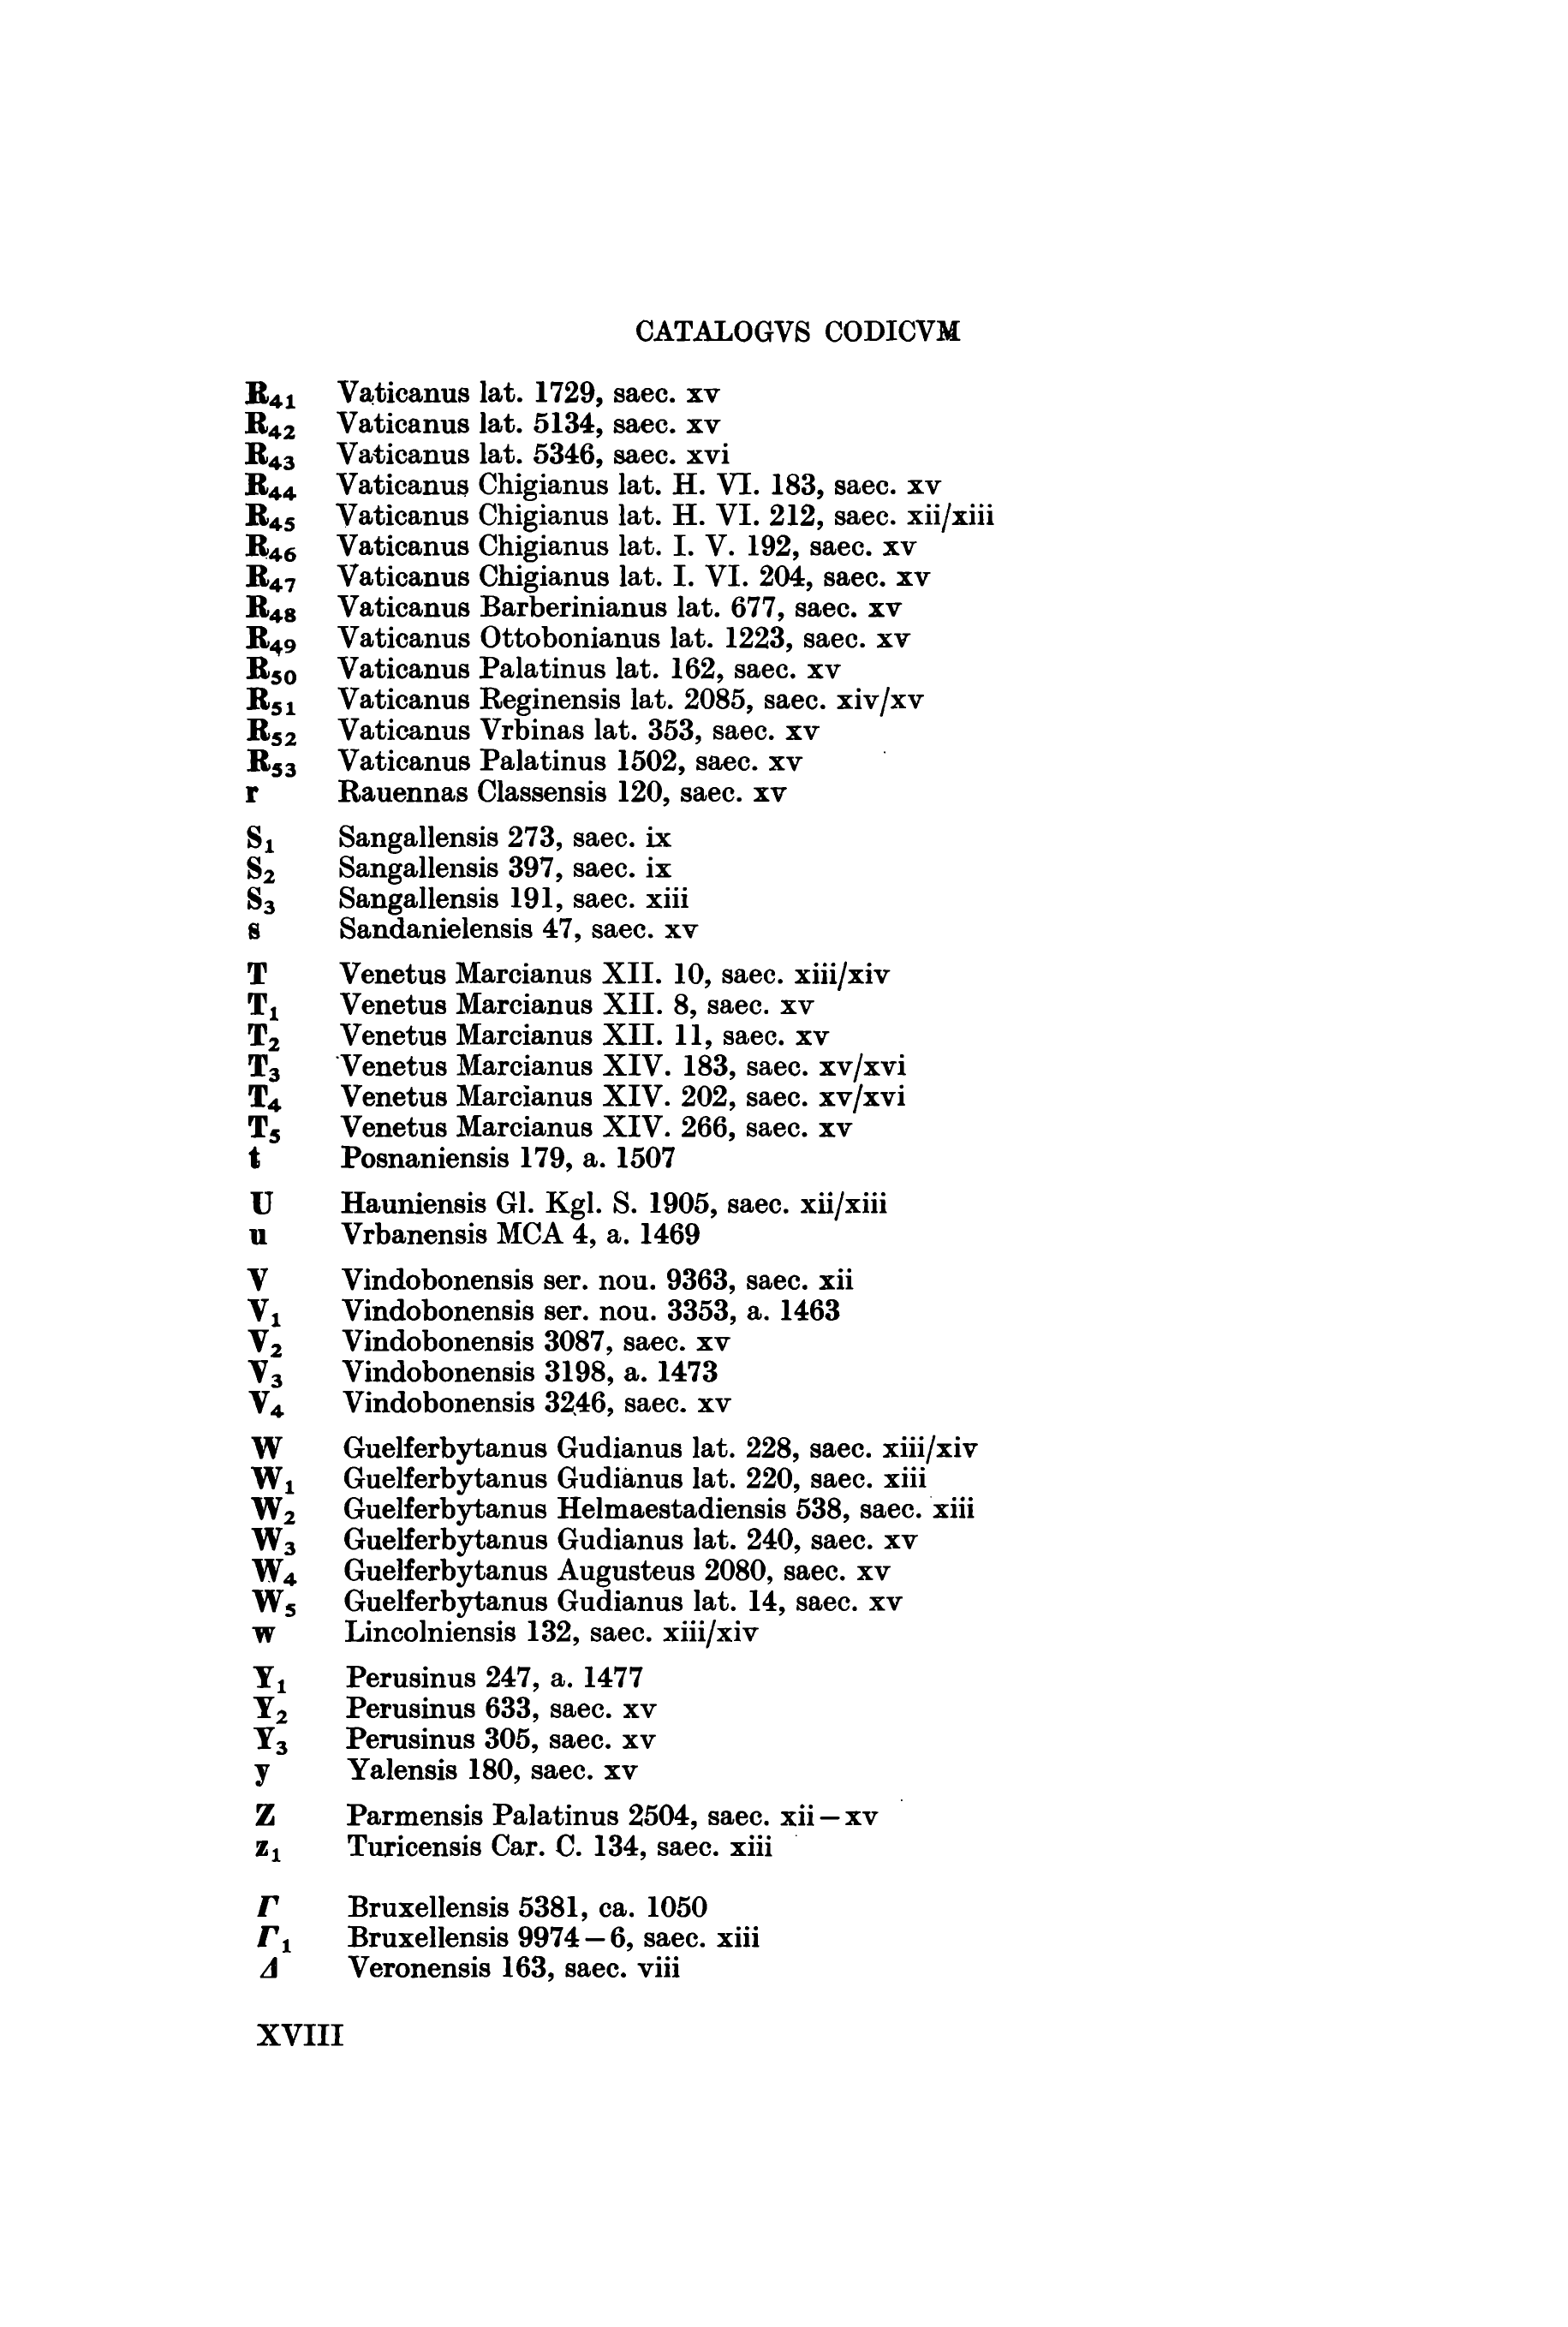 CATALOGVS CODICVM
R41 Vaticanus lat. 1729, saec. xv
R42 Vaticanus lat. 5134, saec. xv
R43 Vaticanus lat. 5346, saec. xvi
R44 Vaticanus Chigianus lat. H. VI. 183, saec. xv
R45 Vaticanus Chigianus lat. H. VI. 212, saec. xii/xiii
R46 Vaticanus Chigianus lat. I. V. 192, saec. xv
R47 Vaticanus Chigianus lat. I. VI. 204, saec. xv
R48 Vaticanus Barberinianus lat. 677, saec. xv
R49 Vaticanus Ottobonianus lat. 1223, saec. xv
R50 Vaticanus Palatinus lat. 162, saec. xv
R51 Vaticanus Reginensis lat. 2085, saec. xiv/xv
R52 Vaticanus Vrbinas lat. 353, saec. xv
R53 Vaticanus Palatinus 1502, saec. xv
r Rauennas Classensis 120, saec. xv
S1 Sangallensis 273, saec. ix
S2 Sangallensis 397, saec. ix
S3 Sangallensis 191, saec. xiii
s Sandanielensis 47, saec. xv
T Venetus Marcianus XII. 10, saec. xiii/xiv
T1 Venetus Marcianus XII. 8, saec. xv
T2 Venetus Marcianus XII. 11, saec. xv
T3 Venetus Marcianus XIV. 183, saec. xv/xvi
T4 Venetus Marcianus XIV. 202, saec. xv/xvi
T5 Venetus Marcianus XIV. 266, saec. xv
t Posnaniensis 179, a. 1507
U Hauniensis Gl. Kgl. S. 1905, saec. xii/xiii
u Vrbanensis MCA 4, a. 1469
V Vindobonensis ser. nou. 9363, saec. xii
V1 Vindobonensis ser. nou. 3353, a. 1463
V2 Vindobonensis 3087, saec. xv
V3 Vindobonensis 3198, a. 1473
V4 Vindobonensis 3246, saec. xv
W Guelferbytanus Gudianus lat. 228, saec. xiii/xiv
W1 Guelferbytanus Gudianus lat. 220, saec. xiii
W2 Guelferbytanus Helmaestadiensis 538, saec. xiii
W3 Guelferbytanus Gudianus lat. 240, saec. xv
W4 Guelferbytanus Augusteus 2080, saec. xv
W5 Guelferbytanus Gudianus lat. 14, saec. xv
w Lincolniensis 132, saec. xiii/xiv
Y1 Perusinus 247, a. 1477
Y2 Perusinus 633, saec. xv
Y3 Perusinus 305, saec. xv
y Yalensis 180, saec. xv
Z Parmensis Palatinus 2504, saec. xii—xv
z1 Turicensis Car. C. 134, saec. xiii
Γ Bruxellensis 5381, ca. 1050
Γ1 Bruxellensis 9974—6, saec. xiii
Δ Veronensis 163, saec. viii
XVIII